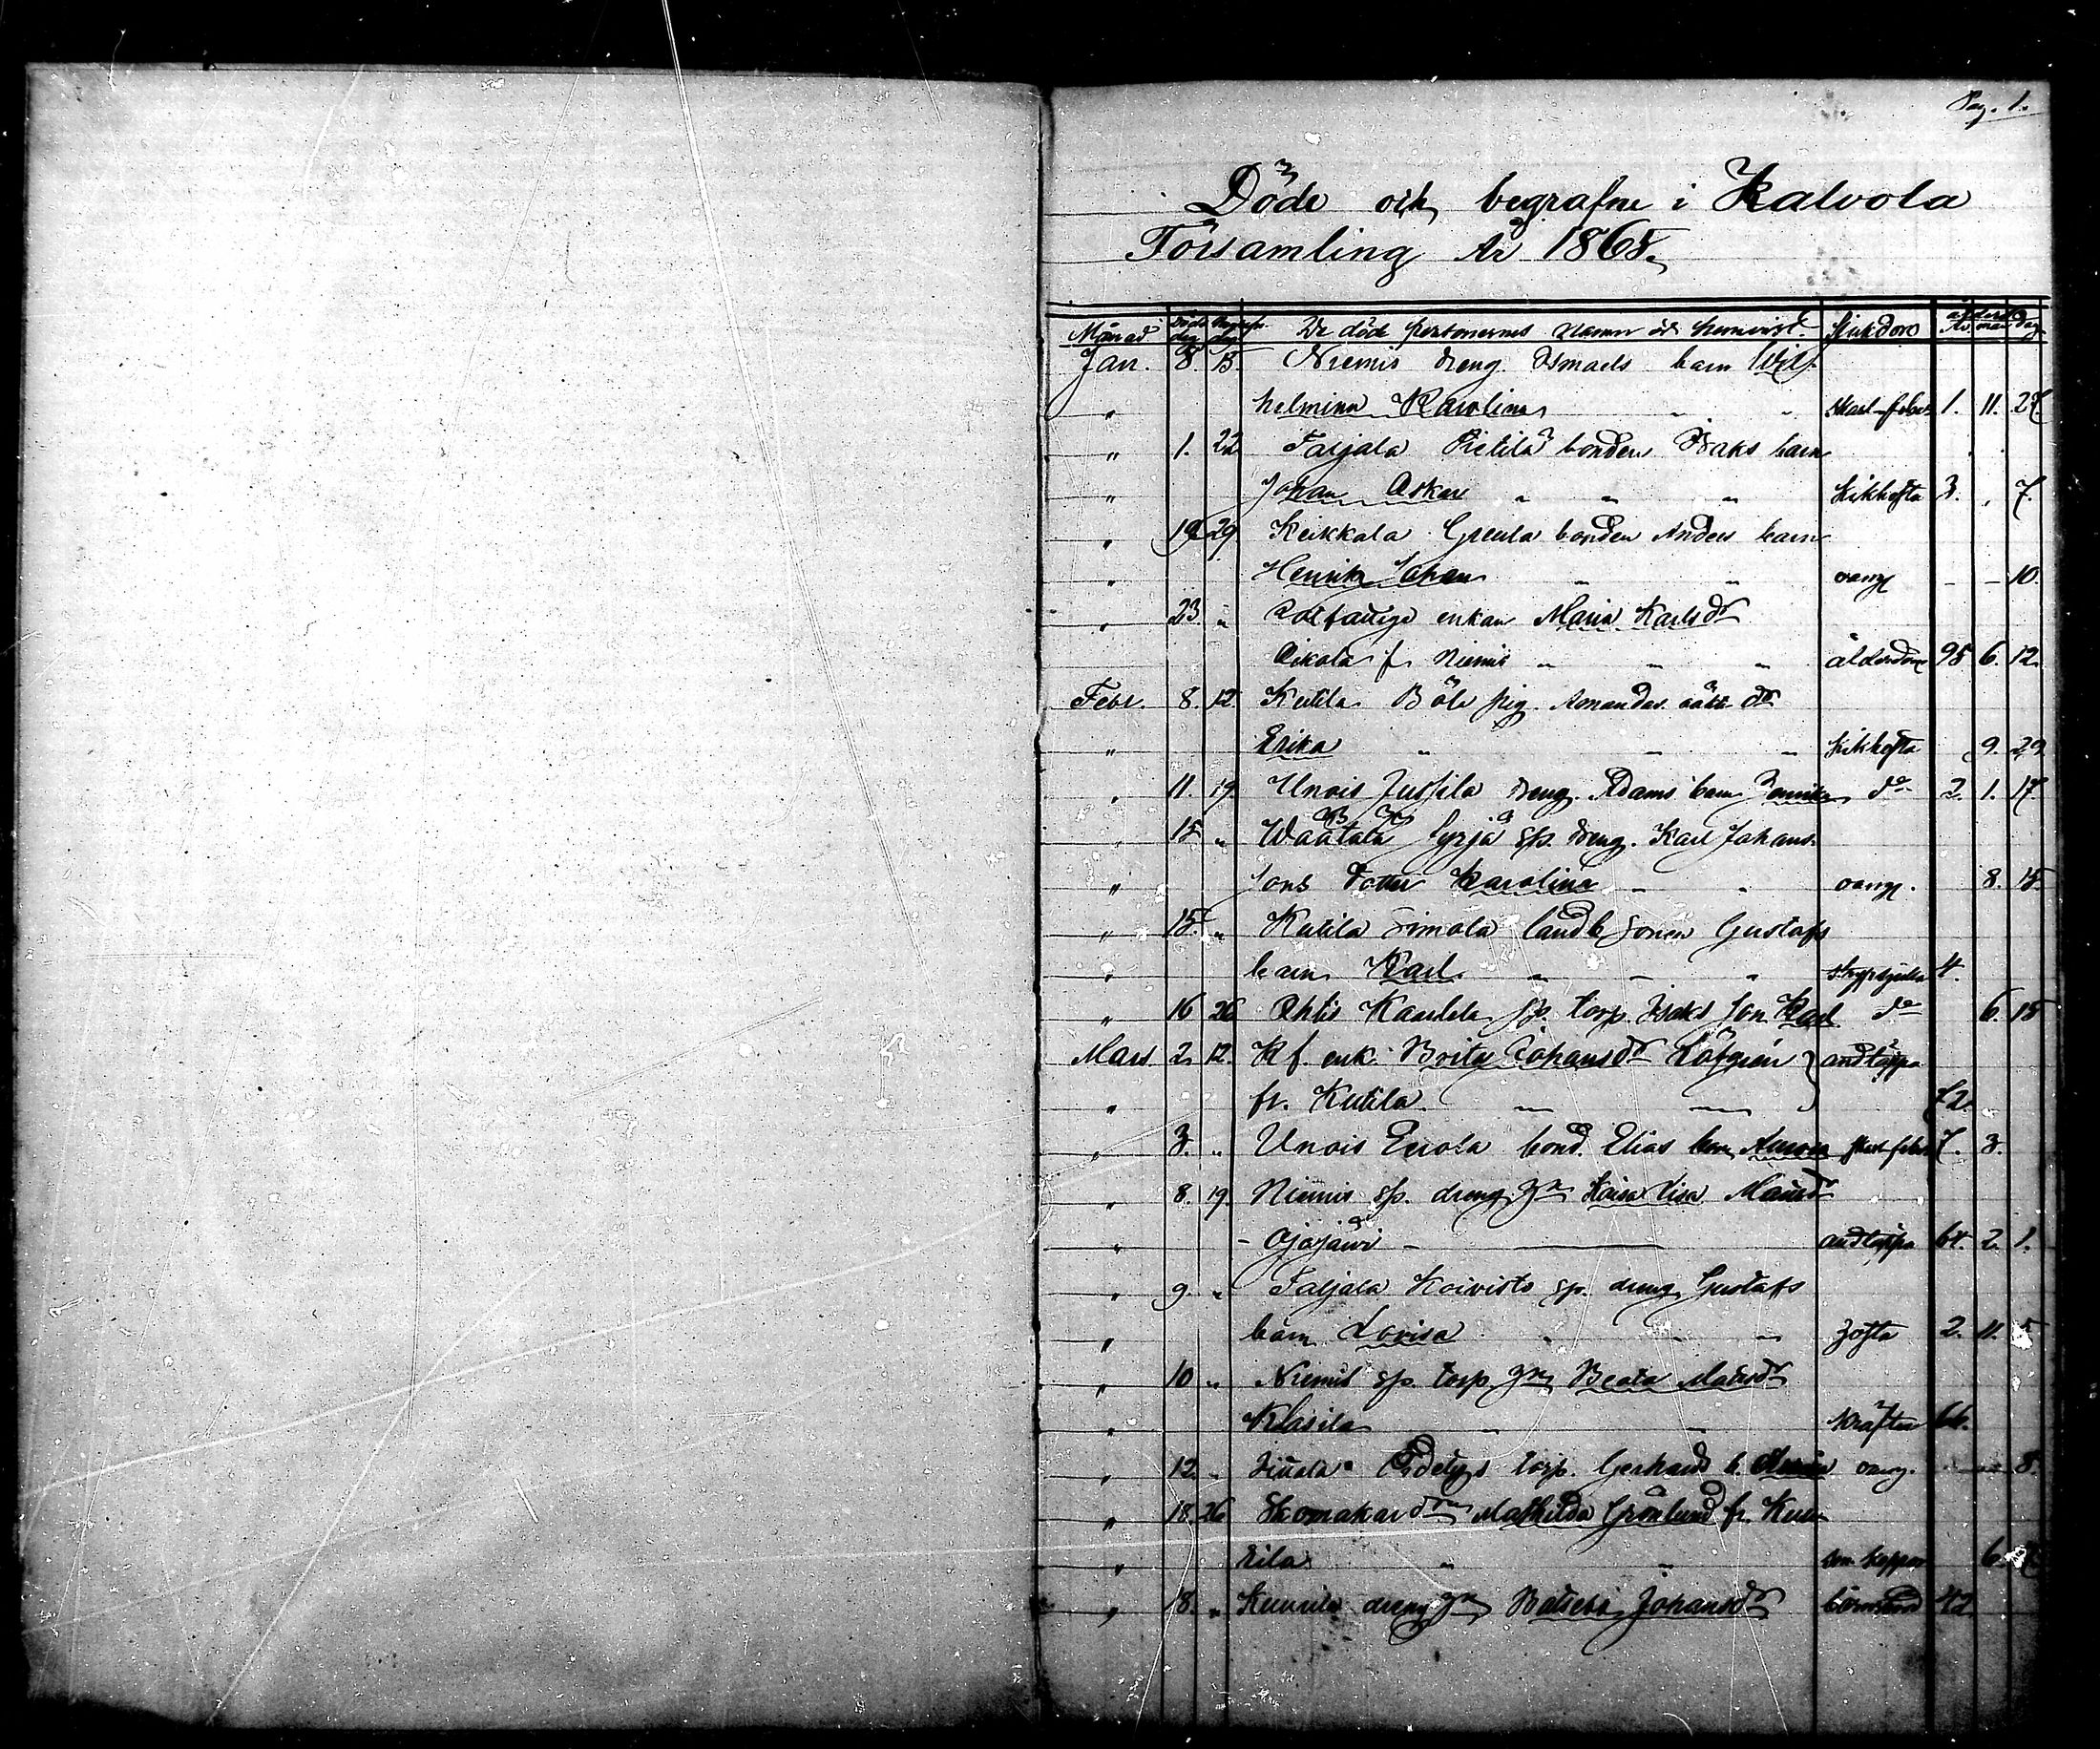 Pag. 1.
Döde och begrafne i Kalvola
Församling År 1865.
Månad Döde dag Begrafn. dag De döde personernes namn och hemvist Sjukdom ålder År mån dag
Jan. 8. 15. Niemis dreng. Ismaels barn Wil-
" helmina Karolina " " Skarl-feber 1. 11. 27.
" 1. 22 Taljala Pietilä bonden Isaks barn
" Johan Oskar " " " Kikhosta 3. , 7.
" 19 29 Keikkala Greula bonden Anders barn
" Henrik Johan " " orang - - 10.
" 23. " Rotfattige enkan Maria Karlsdr
Oikola f. Niemis " " " ålderdom 98 6. 12.
Febr. 8. 12. Kutila Böle pig. Amandas oäkt dr
" Erika " " " Kikhosta 9. 29
" 11. 19. Unois Jussila dreng. Adams barn do 2. 1. 17.
" 15 " Wäätälä Syrjä sp. dreng. Karl Johans-
" sons dotter Karolina " " orang. 8. 15.
" 15. " Kutila Simola landb sonen Gustafs
" barn Karl " " " strypsjuka 4.
" 16 26 Ohtis Kaurila sp. torp. Isaks son Karl do 6. 15
Mars 2. 12. Kf. enk. Brita Johansdr Löfgrén } andtäppa
" fr. Kutila. " " 72.
" 3. " Unois Eerola bond. Elias barn Aurora skarl feber 7. 3.
" 8. 19. Niemis sp. dreng hu Kaisa Lisa Matsdr
" - Ojajärvi - andtäppa 64. 2. 1.
" 9. " Taljala Koivisto sp. dreng Gustafs
" barn Lovisa " " " hosta 2. 11. 5
" 10 " Niemis sp. torp. hu Beata Matsdr
" Klasila " " Kräfta 66.
" 12. " torp. Gerhards b. orang. 8.
" 18. 26 Skomakar dr Mathilda Grönlund fr. Keu-
" rila " " vm. koppor 6.
" 18. " Keurila dreng hu Johansdr barnsbörd 42